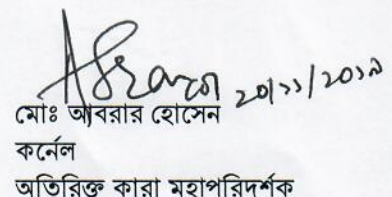 ২০/১১/২০১৯
মোঃ আবরার হোসেন
কর্নেল
অতিরিক্ত কারা মহাপরিদর্শক